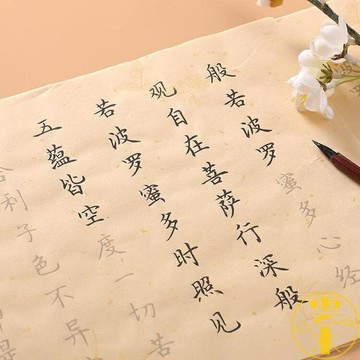 般若波罗蜜多心经
观自在菩萨行深般
若波罗蜜多时照见
五蕴皆空度一切苦
舍利子色不异